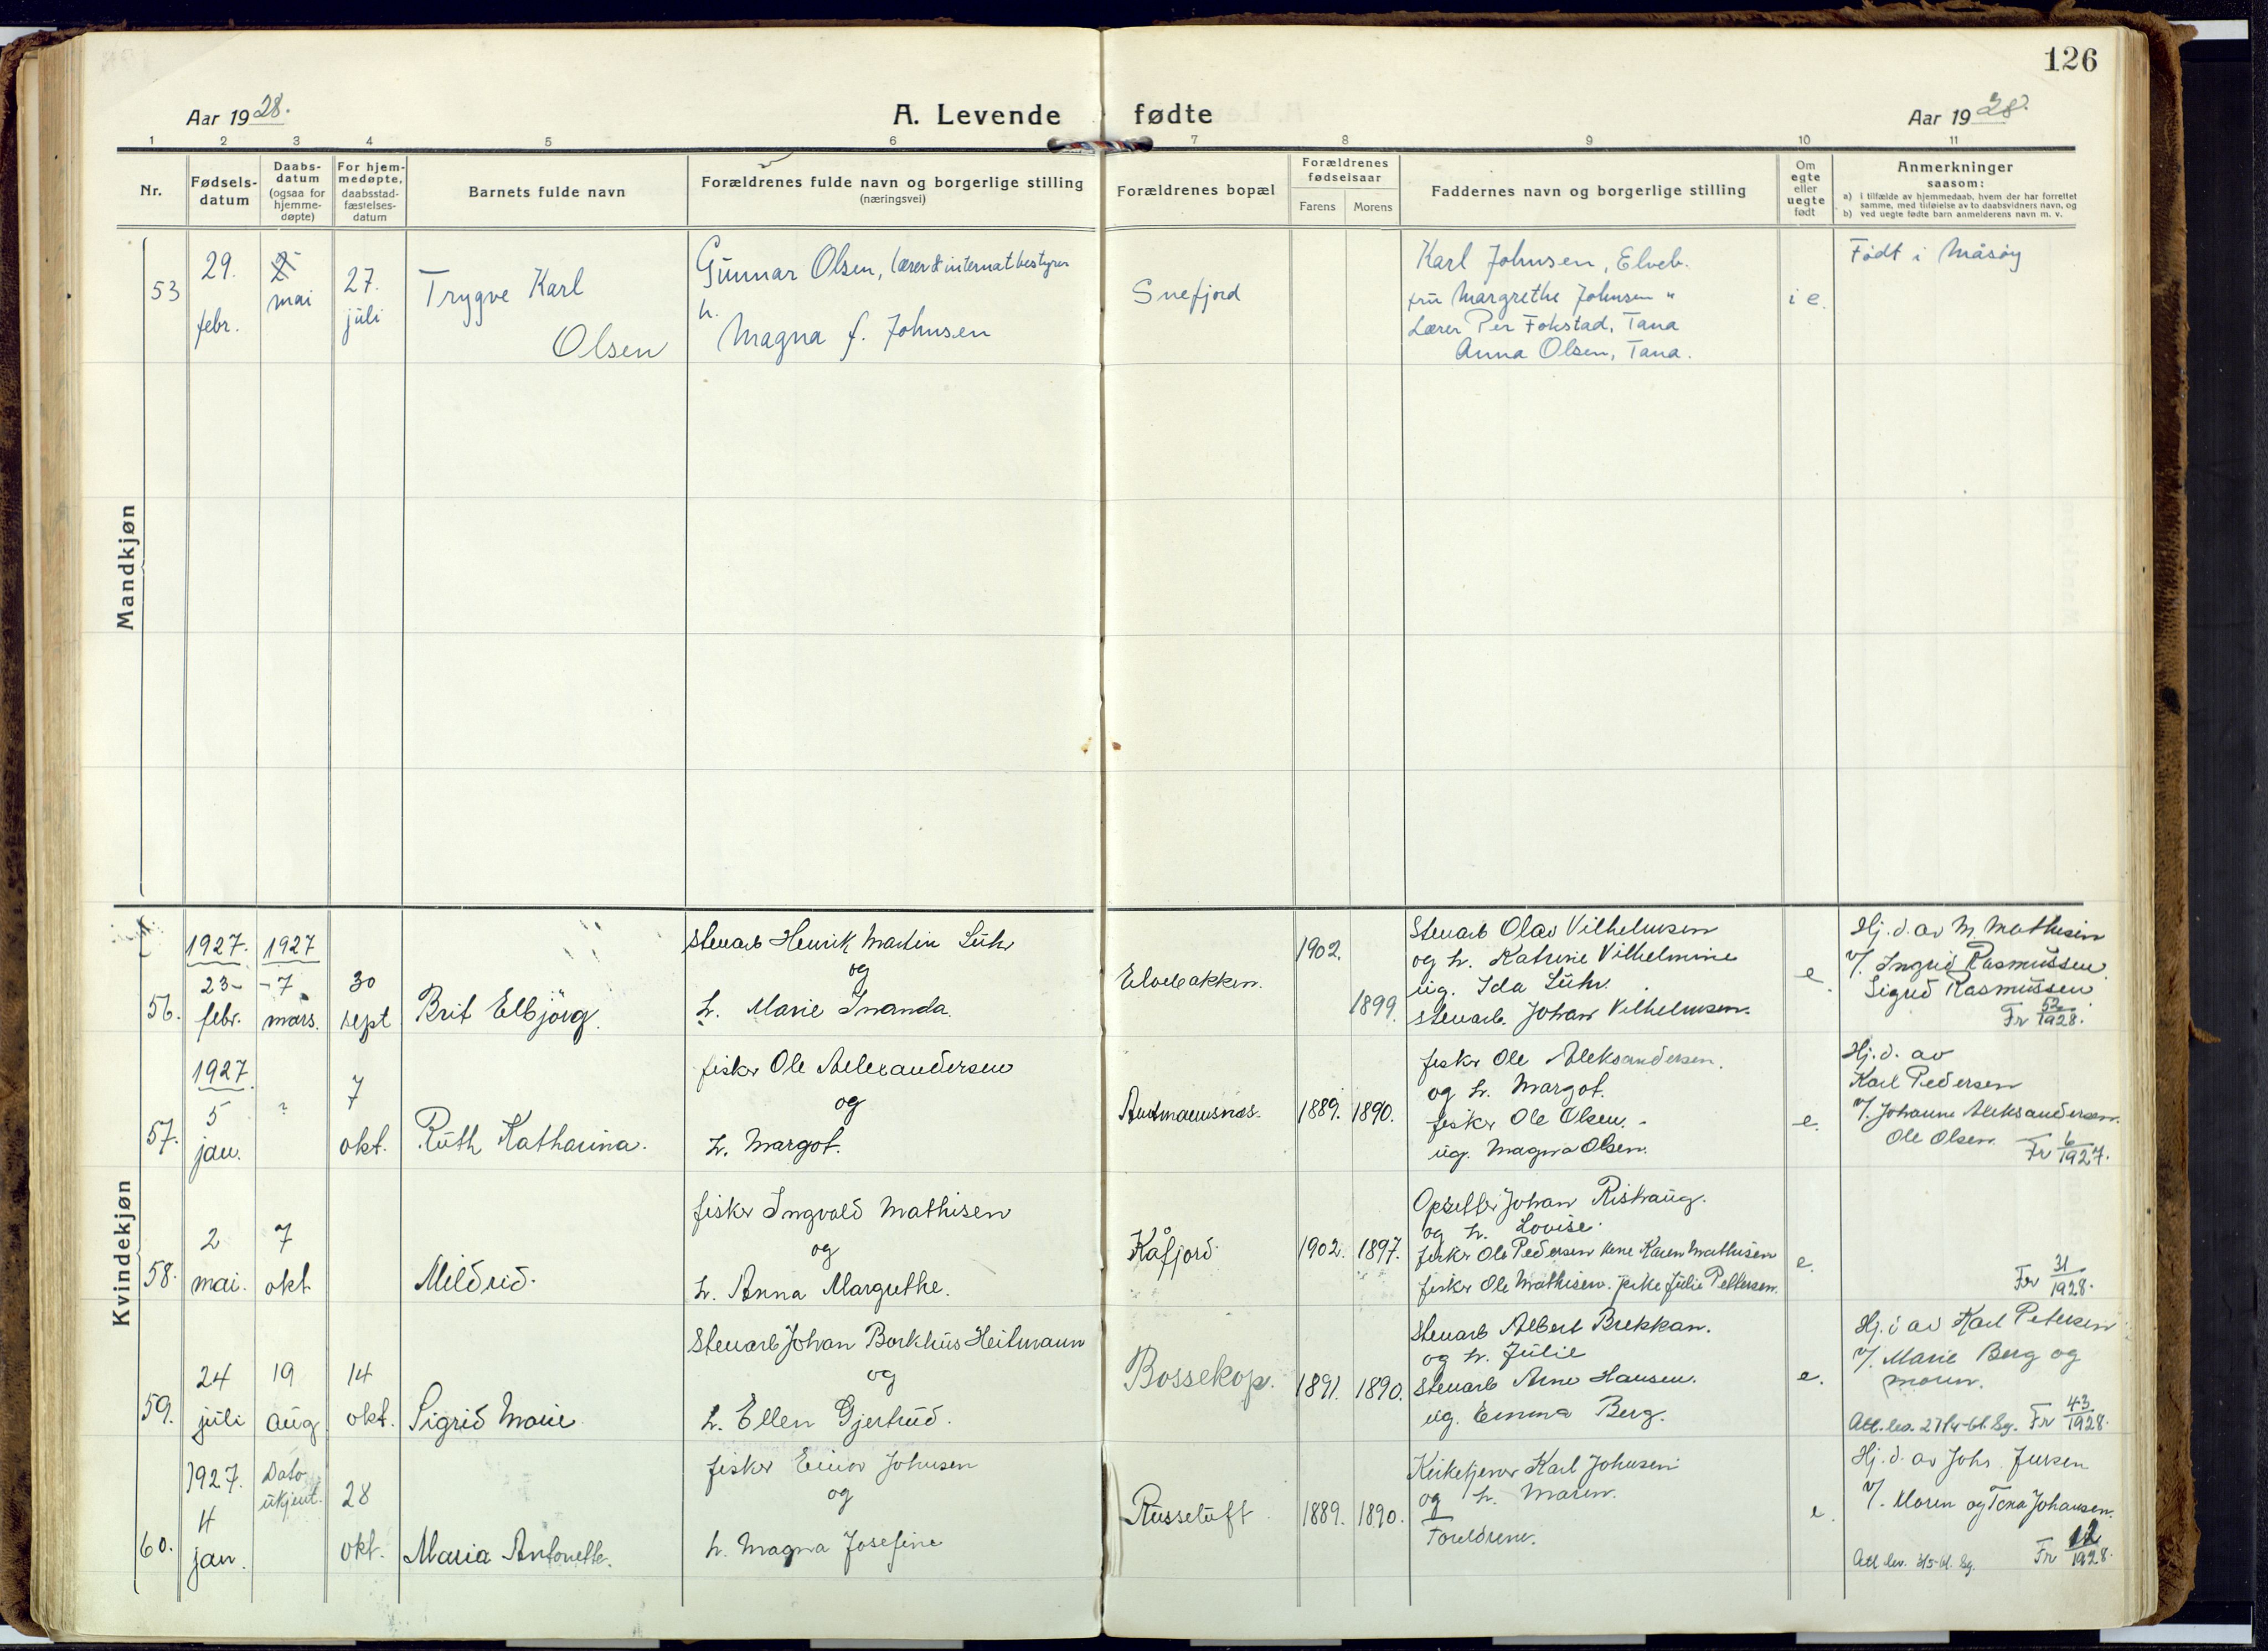 126
Aar 1928.
A. Levende fødte
Aar 1928.
1 2 3 4 5 6 7 8 9 10 11
Nr.
Fødsels-
datum
Daabs-
datum
(ogsaa for
hjemme-
døpte)
For hjem-
medøpte,
daabsstad-
fæstelses-
datum
Barnets fulde navn
Forældrenes fulde navn og borgerlige stilling
(næringsvei)
Forældrenes bopæl
Forældrenes
fødselsaar
Farens Morens
Faddernes navn og borgerlige stilling
Om
egte
eller
uegte
født
Anmerkninger
saasom:
a) i tilfælde av hjemmedaab, hvem der har forrettet
samme, med tilføielse av to daabsvidners navn, og
b) ved uegte fødte barn anmelderens navn m. v.
Mandkjøn
53
29.
febr.
2
mai
27.
juli
Trygve Karl
Olsen
Gunnar Olsen, lærer & internatbestyrer
h.
Magna f. Johnsen
Snefjord
Karl Johnsen, Elveb.
fru Margrethe Johnsen "
Lærer Per Fokstad, Tana
Anna Olsen, Tana.
i e.
Født i Måsøy
Kvindekjøn
56.
1927.
23-
febr.
1927
-7
mars.
30
sept
Brit Elbjörg.
Stenarb Henrik Martin Lühr
og
h. Marie Inanda.
Elvebakken.
1902.
1899.
Stenarb Olav Vilhelmsen
og h. Katrine Vilhelmine
ug. Ida Lühr.
Stenarb. Johan Vilhelmsen.
e.
Hj. d. av M. Mathisen
V/. Ingrid Rasmussen
Sigrid Rasmussen
Fr 52/1928.
57.
1927.
5
jan.
?
7
okt.
Ruth Katharina.
fisker Ole Aelexandersen
og
h. Margot.
Amtmannsnes.
1889. 1890.
fisker Ole Aleksandersen.
og h. Margot.
fisker Ole Olsen.
ug. Magna Olsen.
e.
Hj. d. av
Karl Pedersen
V/. Johanne Aleksandersen.
Ole Olsen. Fr 6/1927.
58.
2
mai.
7
okt
Mildrid.
fisker Ingvald Mathisen
og
h. Anna Margrethe.
Kåfjord
1902. 1897.
Opsitter Johan Rishaug.
og h. Lovise.
fisker Ole Pedersen kone Karen Mathisen
fisker Ole Mathisen. pike Julie Pettersen.
e.
Fr 31/1928.
59.
24
juli
19
aug
14
okt.
Sigrid Marie
Stenarb Johan Borkhus Heitmann
og
h. Ellen Gjertrud.
Bossekop.
1891. 1890.
Stenarb Albert Brekkan.
og h. Julie
Stenarb Arne Hansen.
ug. Emma Berg.
e.
Hj. d av Karl Petersen
V/. Marie Berg og
moren.
Fr 43/1928.
60.
1927.
4
jan.
Dato
ukjent.
28
okt.
Maria Antonette.
fisker Einar Johnsen
og
h. Magna Josefine
Russeluft.
1889. 1890.
Kirketjener Karl Johnsen
og h. Maren.
Foreldrene.
e.
Hj. d. av Johs Jursen
V/. Maren og Tora Johansen.
Fr 12/1928.